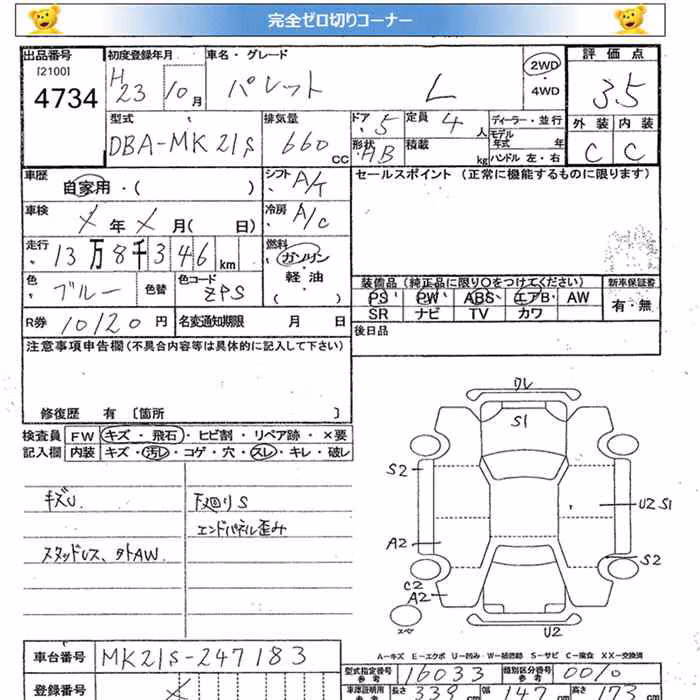 完全ゼロ切りコーナー
出品番号 初度登録年月 車名・グレード 2WD 評価点
[2100] 4734 H23 10月 パレット L ・4WD 3.5
型式 排気量 ドア・5 定員 4人 ディーラー・並行 外装 内装
DBA-MK21S 660cc 形状 HB 積載 kg モデル年式 年 ハンドル 左・右 C C
車歴 自家用・( ) シフト A/T セールスポイント (正常に機能するものに限ります)
車検 メ年メ月( 日) 冷房 A/C
走行 13万8千346km 燃料 ガソリン・軽油・( )
色 ブルー 色替 色コード ZPS 装備品(純正品に限り○をつけてください) 新車保証書
PS PW ABS エアB AW 有・無
R券 10120円 名変通知期限 月 日 SR ナビ TV カワ
注意事項申告欄(不具合内容等は具体的に記入して下さい) 後日品
修復歴 有 [箇所 ]
検査員 FW キズ・飛石・ヒビ割・リペア跡・×要
記入欄 内装 キズ・汚レ・コゲ・穴・スレ・キレ・破レ
キズU 下廻りS
エンドパネル歪み
スタッドレス、タトAW
ワレ
S1
S2
U2 S1
A2
S2
C2
A2
スペア
U2
A-キズ E-エクボ U-凹み W-補修跡 S-サビ C-腐食 XX-交換済
車台番号 MK21S-247183
型式指定番号 参考 16033 類別区分番号 参考 0010
登録番号 メ 車庫証明用 参考 長さ 339cm 幅 147cm 高さ 173cm